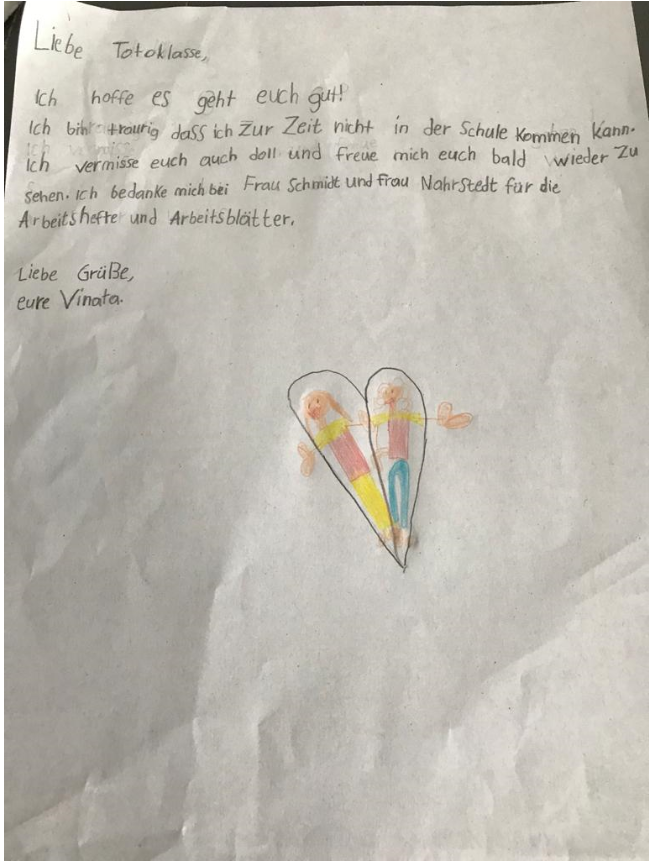 Liebe Totoklasse,
Ich hoffe es geht euch gut!
Ich bin traurig dass ich zur Zeit nicht in der Schule kommen kann.
Ich vermisse euch auch doll und freue mich euch bald wieder zu
sehen. Ich bedanke mich bei Frau Schmidt und Frau Nahrstedt für die
Arbeitshefte und Arbeitsblätter.
Liebe Grüße,
eure Vinata.